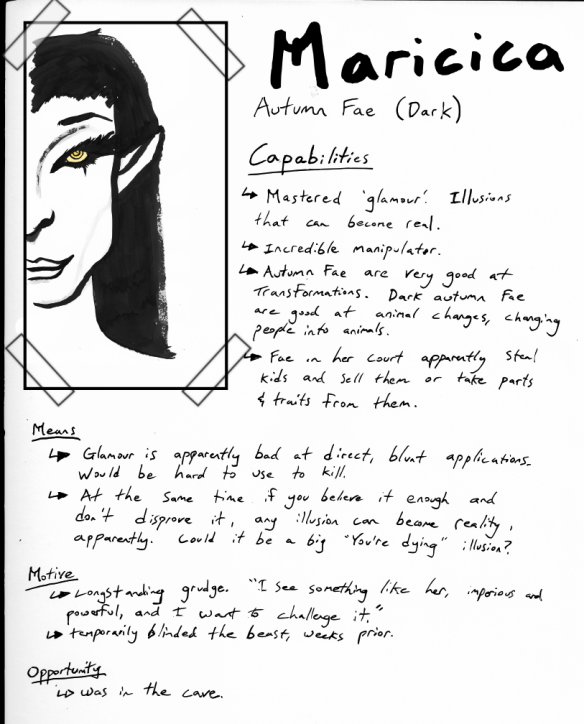 Maricica
Autumn Fae (Dark)
Capabilities
↳ Mastered 'glamour'. Illusions
that can become real.
↳ Incredible manipulator.
↳ Autumn Fae are very good at
Transformations. Dark autumn Fae
are good at animal changes, changing
people into animals.
↳ Fae in her court apparently steal
kids and sell them or take parts
& traits from them.
Means
↳ Glamour is apparently bad at direct, blunt applications.
Would be hard to use to kill.
↳ At the same time if you believe it enough and
don't disprove it, any illusion can become reality,
apparently. Could it be a big "You're dying" illusion?
Motive
↳ Longstanding grudge. "I see something like her, imperious and
powerful, and I want to challenge it."
↳ temporarily blinded the beast, weeks prior.
Opportunity
↳ Was in the cave.